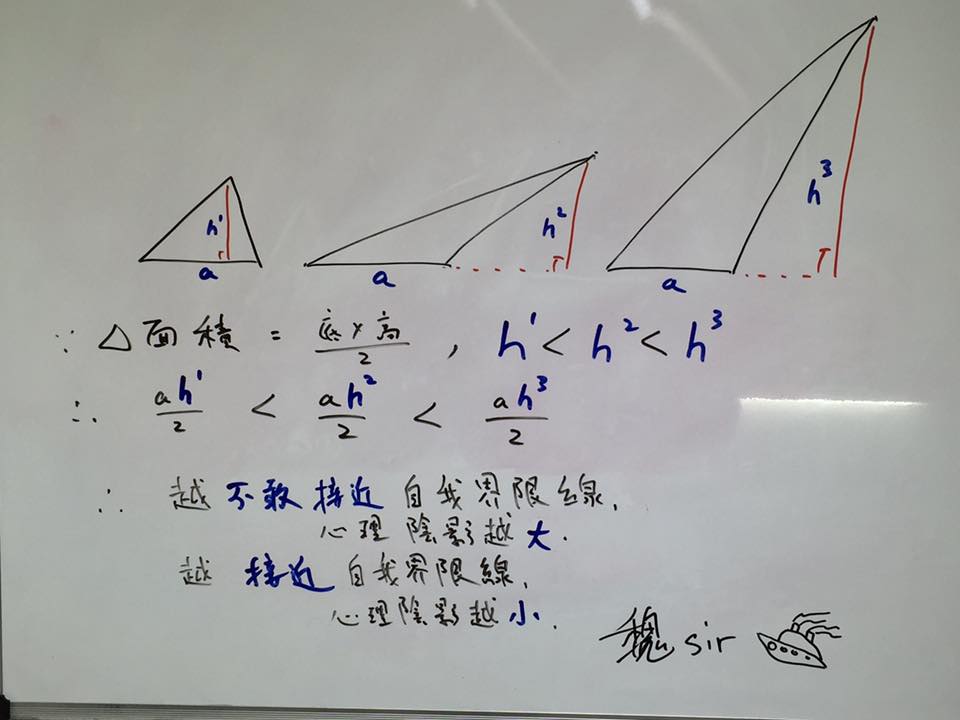 h¹
a
h²
a
h³
a
∵ △面積 = 底×高/2 , h¹ < h² < h³
∴ ah¹/2 < ah²/2 < ah³/2
∴ 越不敢接近自我界限線,
心理陰影越大.
越接近自我界限線,
心理陰影越小.
魏 sir